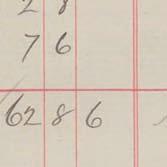 2 8
7 6
62 8 6